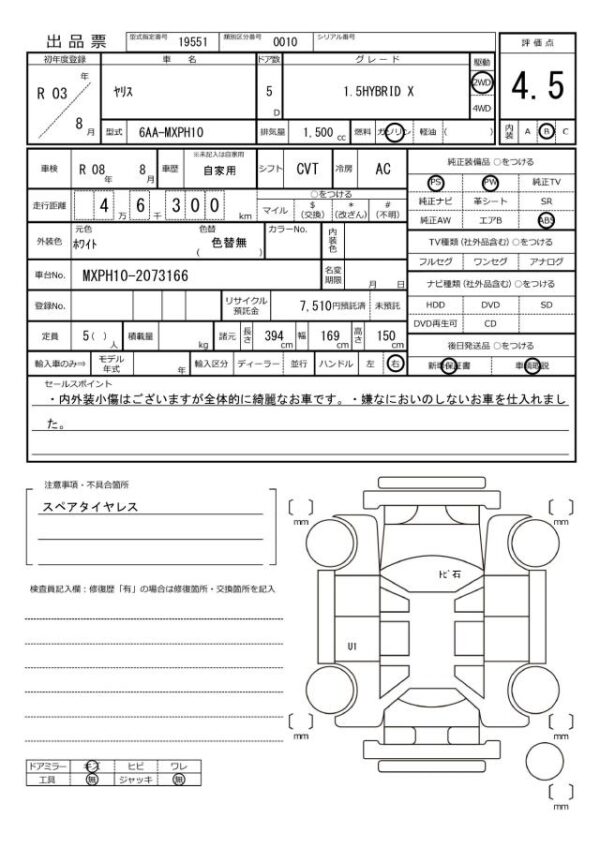 出品票 型式指定番号 19551 類別区分番号 0010 シリアル番号 評価点
初年度登録 車名 ドア数 グレード 駆動
R 03 年 ヤリス 5 D 1.5HYBRID X 2WD 4.5
4WD
8 月 型式 6AA-MXPH10 排気量 1,500 cc 燃料 ガソリン 軽油 ( ) 内装 A B C
車検 R 08 年 8 月 車歴 ※未記入は自家用 自家用 シフト CVT 冷房 AC 純正装備品 ○をつける
PS PW 純正TV
走行距離 4 万 6 千 3 0 0 km ○をつける 純正ナビ 革シート SR
マイル $ (交換) * (改ざん) # (不明) 純正AW エアB ABS
外装色 元色 ホワイト 色替 色替無 ( ) カラーNo. 内装色 TV種類 (社外品含む) ○をつける
フルセグ ワンセグ アナログ
車台No. MXPH10-2073166 名変期限 月 日 ナビ種類 (社外品含む) ○をつける
登録No. リサイクル預託金 7,510円預託済 未預託 HDD DVD SD
DVD再生可 CD
定員 5 ( ) 人 積載量 kg 諸元 長さ 394 cm 幅 169 cm 高さ 150 cm 後日発送品 ○をつける
輸入車のみ⇒ モデル年式 年 輸入区分 ディーラー 並行 ハンドル 左 右 新車保証書 車輌取説
セールスポイント
・内外装小傷はございますが全体的に綺麗なお車です。・嫌なにおいのしないお車を仕入れまし
た。
注意事項・不具合箇所
スペアタイヤレス
mm mm
トビ石
検査員記入欄:修復歴「有」の場合は修復箇所・交換箇所を記入
U1
mm mm
ドアミラー キズ ヒビ ワレ
工具 無 ジャッキ 無
mm